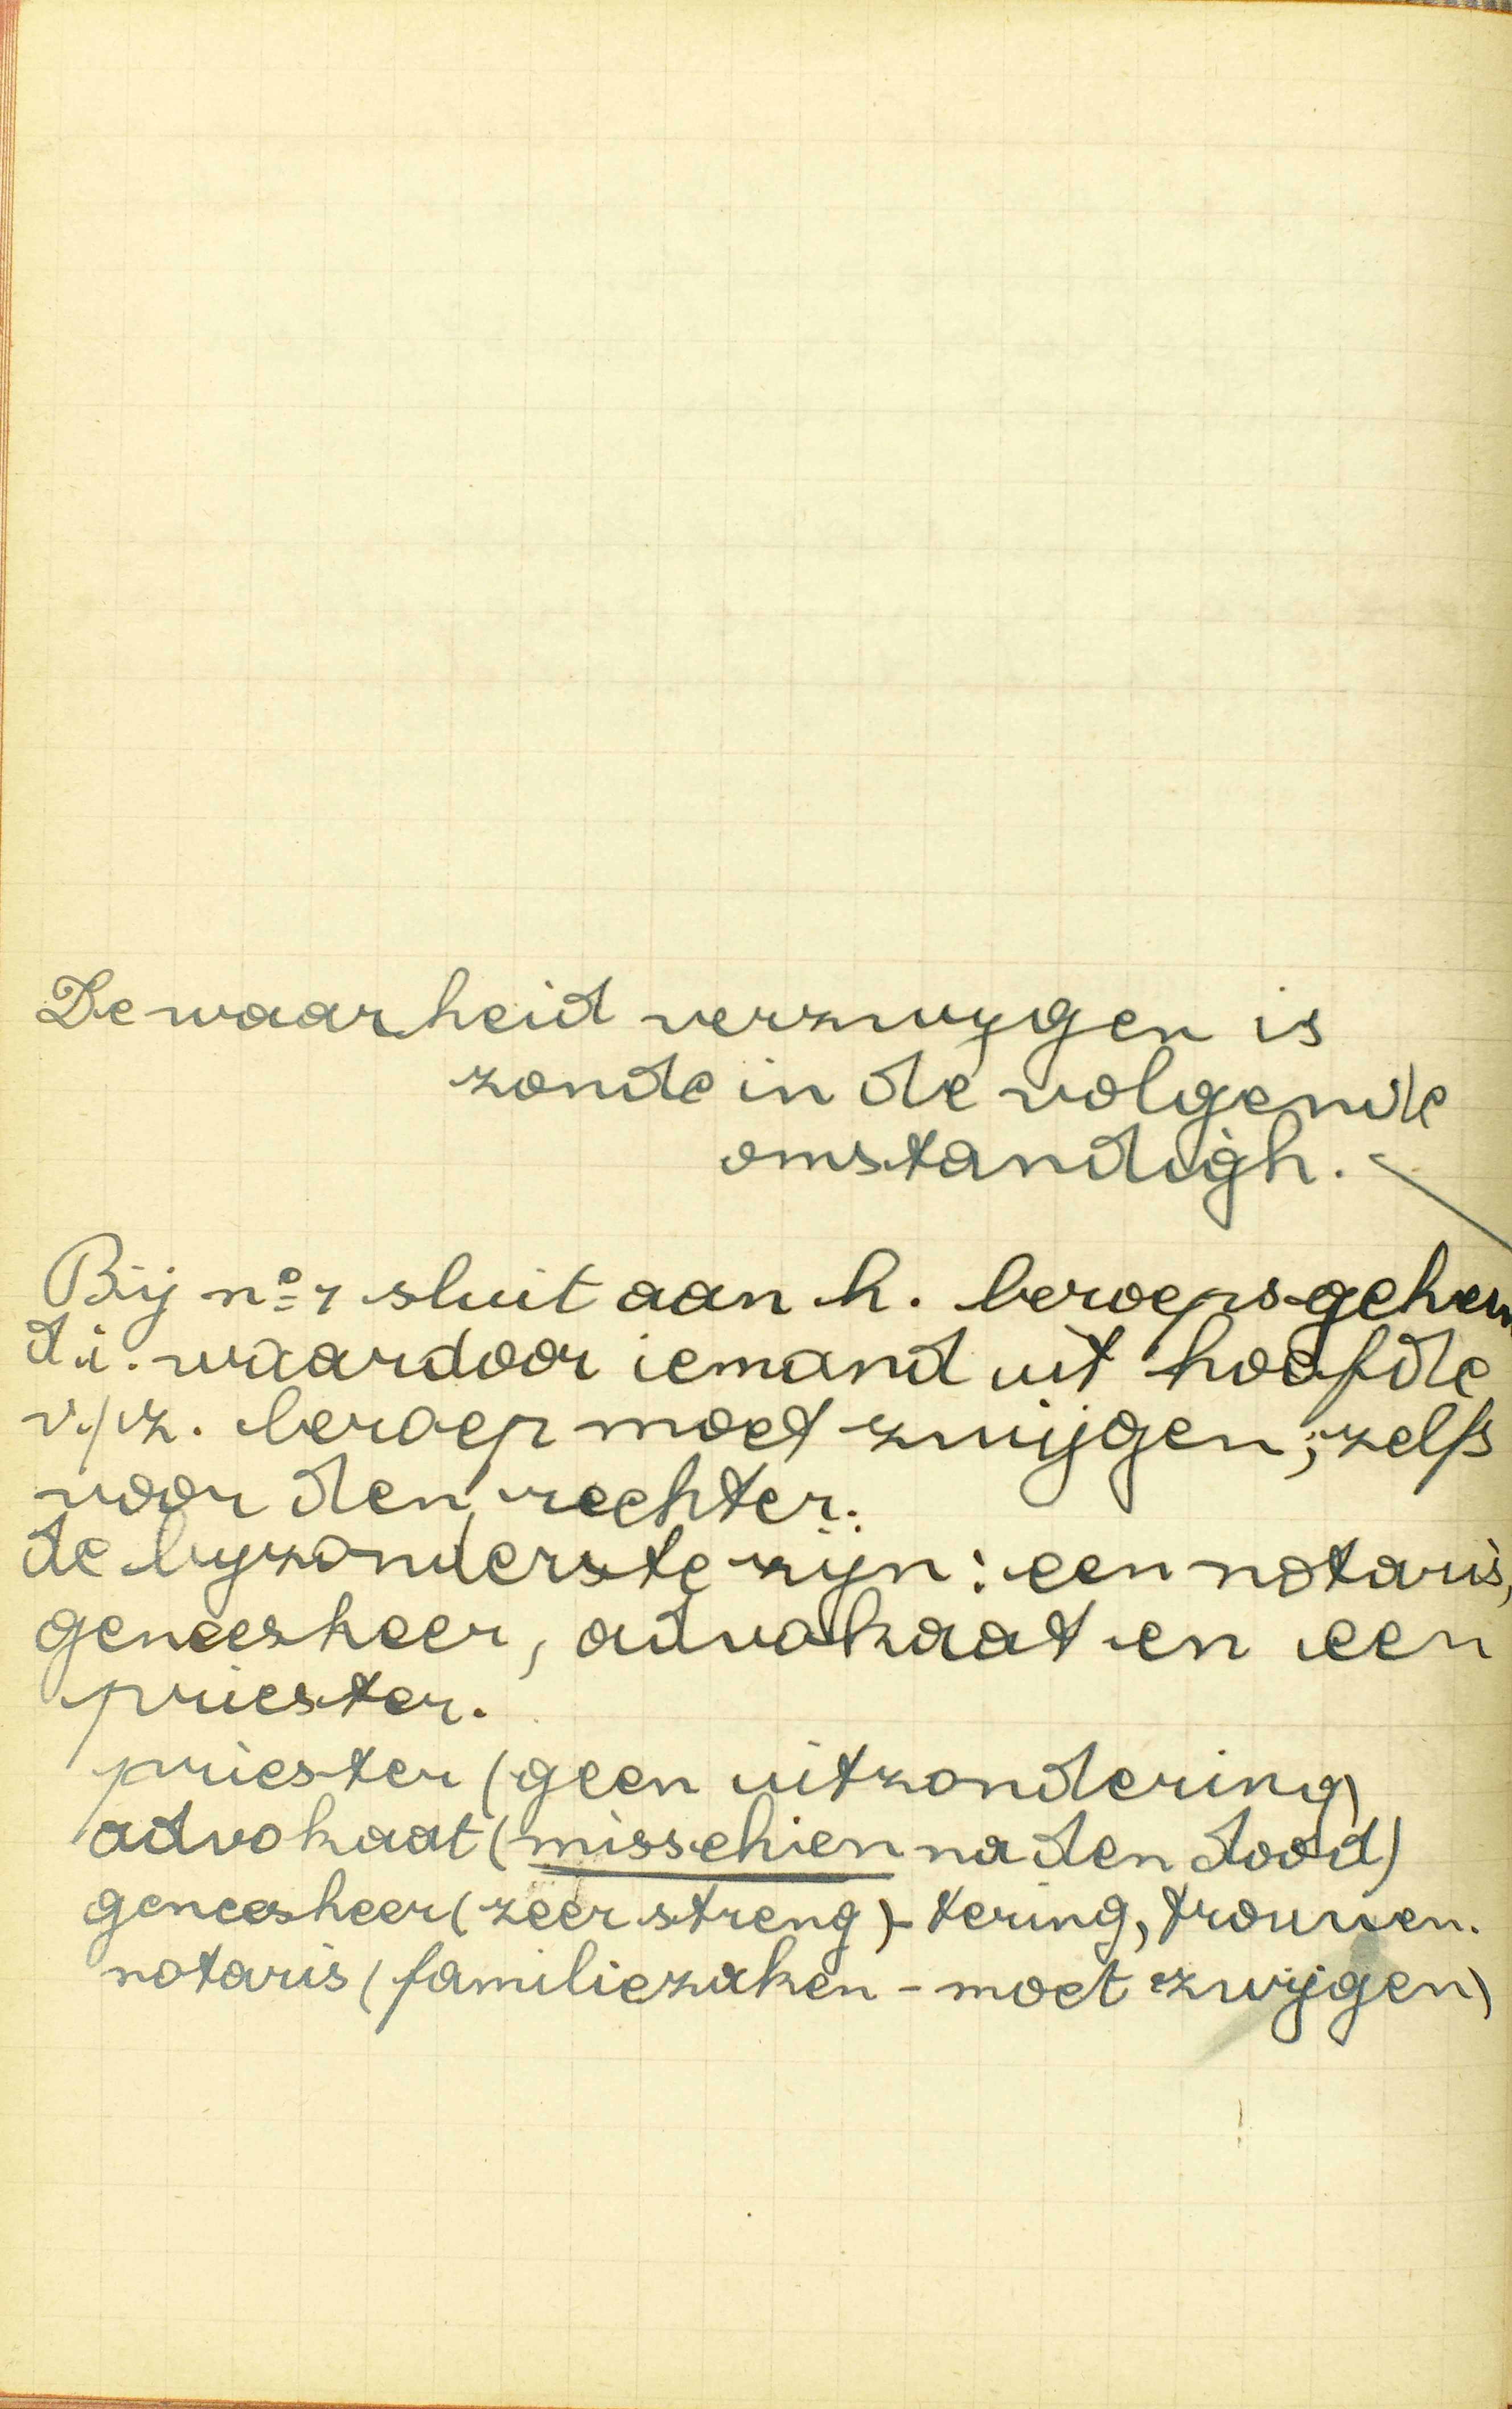 De waarheid verzwijgen is
zonde in de volgende
omstandigh.
Bij nº 1 sluit aan h. beroepsgeheim
d.i. waardoor iemand uit hoofde
v./z. beroep moet zwijgen; zelfs
voor den rechter.
de byzonderste zijn: een notaris,
geneesheer, advokaat en een
priester.
priester (geen uitzondering)
advokaat (misschien na den dood)
geneesheer (zeer streng) - tering, trouwen.
notaris (familiezaken - moet zwijgen)